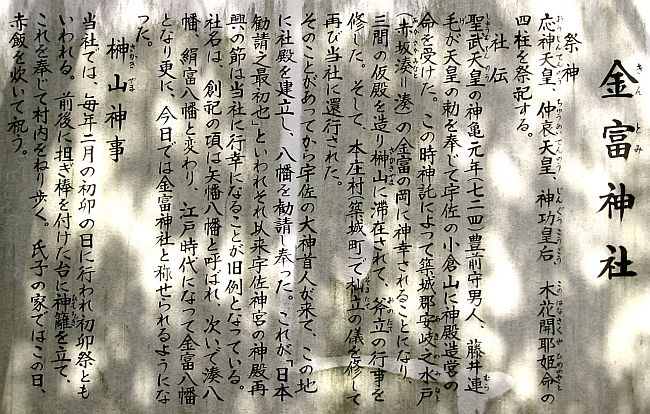 金富神社
祭神
応神天皇、仲哀天皇、神功皇后、木花開耶姫命の
四柱を祭祀する。
社伝
聖武天皇の神亀元年(七二四)豊前守男人、藤井連
毛が天皇の勅を奉じて宇佐の小倉山に神殿造営の
命を受けた。この時神託によって築城郡安岐之水戸
(赤坂湊り湊)の金富の岡に神幸されることになり
三間の仮殿を造り榊山に滞在されて、斧立の行事を
修した。そして、本庄村(築城町)で杣立の儀を修して
再び当社に還行された。
そのことがあってから宇佐の大神首人が来て、この地
に社殿を建立し、八幡を勧請し奉った。これが「日本
勧請之最初也」といわれそれ以来宇佐神宮の神殿再
興の節は当社に行幸になることが旧例となっている。
社名は、創祀の項は矢幡八幡と呼ばれ、次いで湊八
幡、絹富八幡と変わり、江戸時代になって金富八幡
となり更に、今日では金富神社と称せられるようにな
った。
榊山神事
当社では、毎年二月の初卯の日に行われ初卯祭とも
いわれる。前後に担ぎ棒を付けた台に神籬を立て、
これを奉じて村内をねり歩く。氏子の家ではこの日、
赤飯を炊いて祝う。